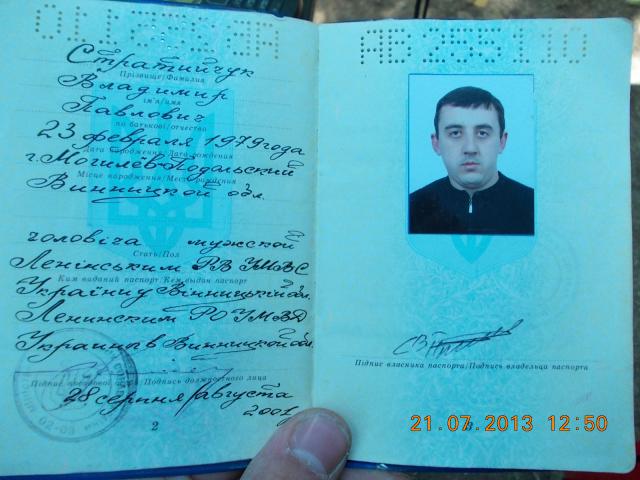 Стратийчук
Прізвище/Фамилия
Владимир
ім'я/имя
Павлович
по батькові/отчество
23 февраля 1979 года
Дата народження/Дата рождения
г. Могилёв-Подольский
Місце народження/Место рождения
Винницкой обл.
чоловіча мужской
Стать/Пол
Ленінським РВ УМВС
Ким виданий паспорт/Кем выдан паспорт
України у Вінницькій обл.
Ленинским РО УМВД
Украины в Винницкой обл.
Підпис посадової особи/Подпись должностного лица
28 серпня/августа
2001
2
Підпис власника паспорта/Подпись владельца паспорта
21.07.2013 12:50